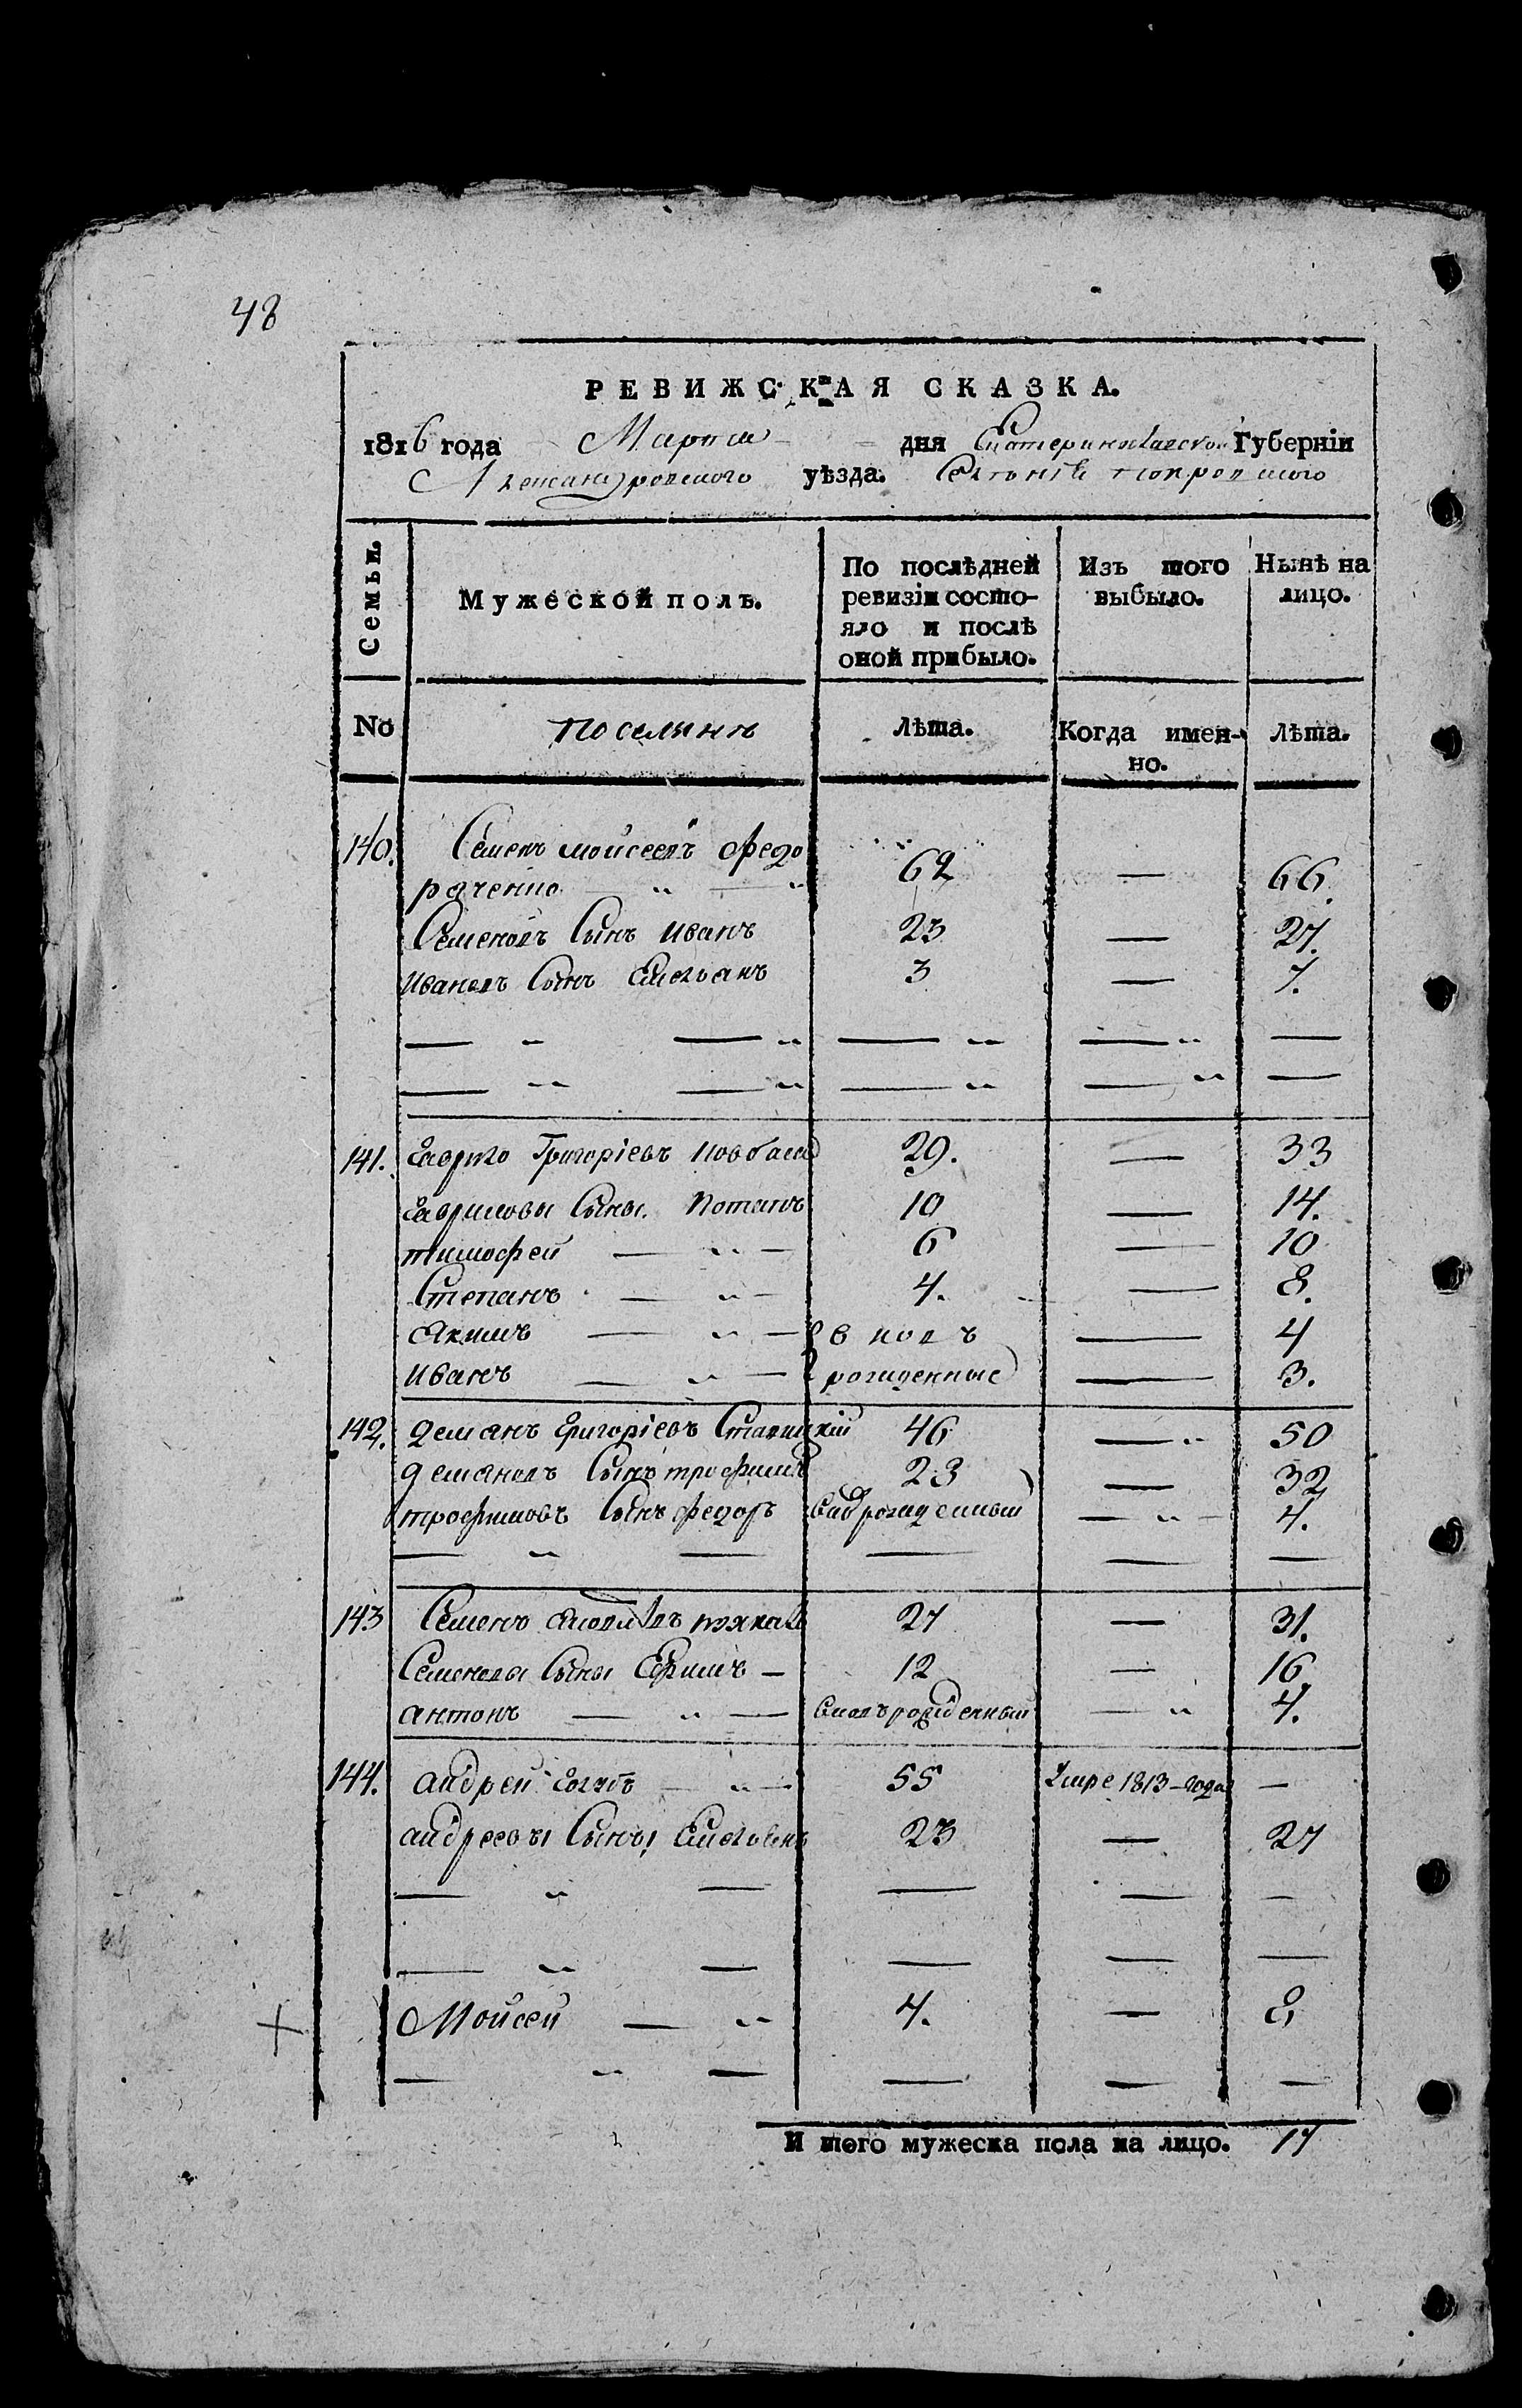 48
РЕВИЖСКАЯ СКАЗКА.
1816 года Марта дня Екатеринославской Губерніи
Александровского уѣзда. Селенія покровского
Семьи. Мужеской полъ. По послѣдней ревизіи состояло и послѣ оной прибыло. Изъ того выбыло. Нынѣ на лицо.
No поселянъ Лѣта. Когда именно. Лѣта.
140. Семенъ мойсеевъ федо
раченко — 62 — 66
Семеновъ Сынъ иванъ 23 — 27.
ивановъ Сынъ Емельянъ 3 — 7.
141. Гаврило Григоріевъ 29. — 33
Гавриловы Сыны. Потапъ 10 — 14.
тимофей — 6 — 10
Степанъ — 4. — 8.
Якимъ — в новъ — 4
иванъ — рожденные — 3.
142. демянъ Григоріевъ Ставицкій 46 — 50
демяновъ Сынъ трофимъ 23 — 32
трофимовъ Сынъ федоръ рожденный — 4.
143 Семенъ 27 — 31.
Семеновы Сыны Ефимъ — 12 — 16
антонъ — вновъ рожденный — 4.
144. андрей — 55 Умре 1813-года —
андреевы Сыны Емельянъ 23 — 27
Мойсей — 4. — 8.
Итого мужеска пола на лицо. 17